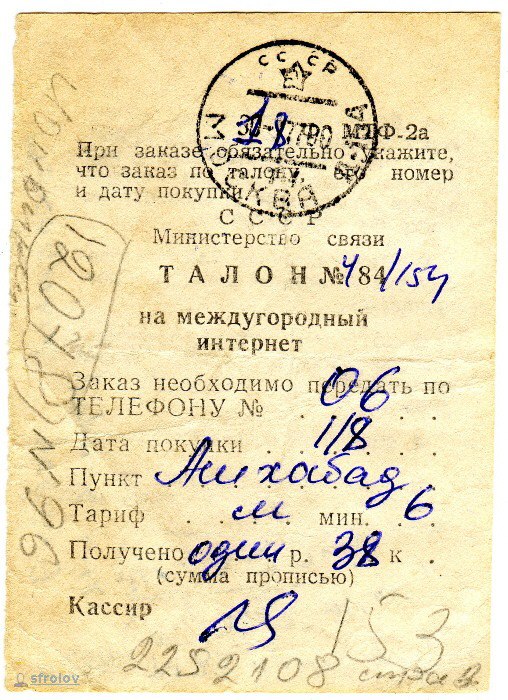 СС СР
МОСКВА
МТФ-2а
При заказе обязательно укажите,
что заказ по талону, его номер
и дату покупки
СССР
Министерство связи
ТАЛОН № 4/84/154
на междугородный
интернет
Заказ необходимо передать по
ТЕЛЕФОНУ № 06
Дата покупки 1/8
Пункт Ашхабад
Тариф м мин. 6
Получено один р. 38 к.
(сумма прописью)
Кассир
12078
N 96
153
2252108 стр 2
sfrolov